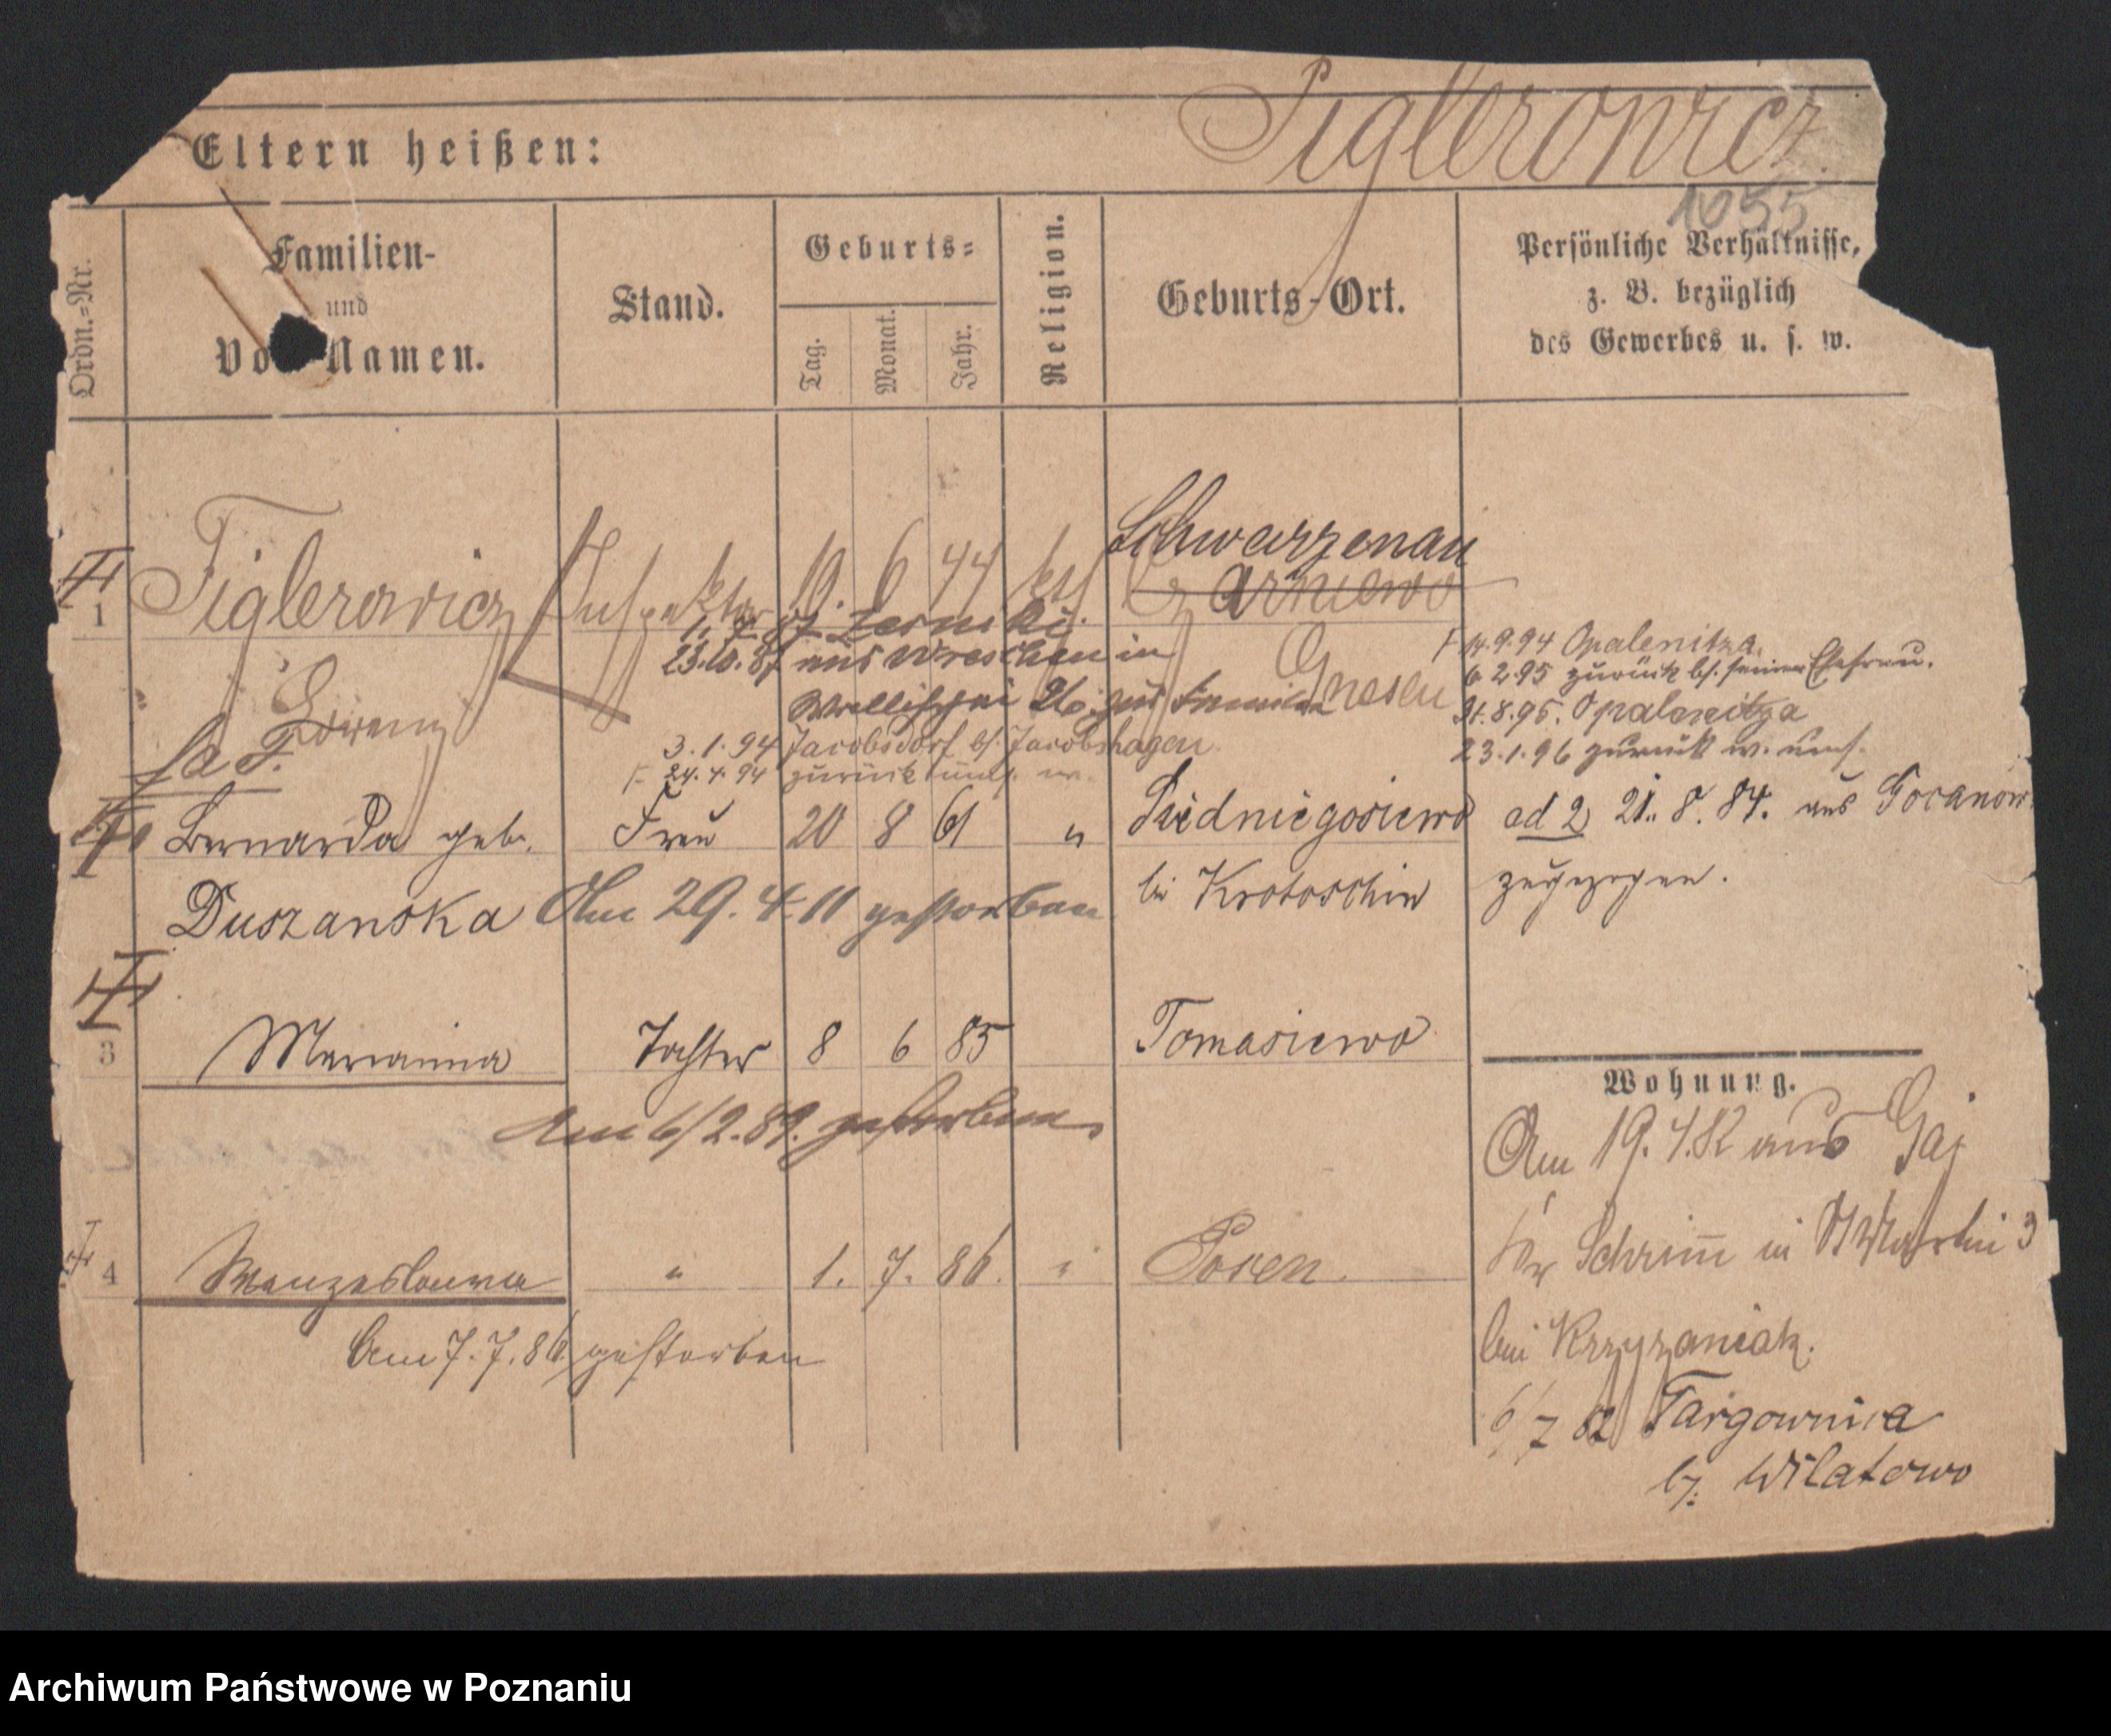 Eltern heißen:
Figlerowicz
1055
Ordn.-Nr.
Familien-
und
Vor-Namen.
Stand.
Geburts-
Tag.
Monat.
Jahr.
Religion.
Geburts-Ort.
Persönliche Verhältnisse,
z. B. bezüglich
des Gewerbes u. s. w.
1 Figlerowicz Inspektor 10. 6 44 ktl Schwarzenau
Czarniewo
1. 7. 87 Zerniki
23.10.87 aus Wreschen in
Gnesen
Wallischei 26 zur Familie
Lorenz
fa F.
3.1.94 Jacobsdorf b/. Jacobshagen
24.4.94 zurück
14.9.94 Opalenitza.
6.2.95 zurück bs. seiner Ehefrau.
31.8.95. Opalenitza
23.1.96 zurück w. umst.
Bernarda geb. Frau 20 8 61 " Niedniegosiewo
Duszanska Am 29. 4. 11 gestorben
bei Krotoschin
ad 2 21. 8. 84. aus Gocanowo
zugezogen.
3 Marianna Tochter 8 6 85 Tomasiewo
Am 6/2.89. gestorben
4 Wanzeslawa " 1. 7. 86. " Posen.
Am 7.7.86 gestorben
Wohnung.
Am 19.4.82 aus Gaj
Kr Schrimm in St Martin 3
bei Krzyzaniak.
6/7 82 Targownica
b/. Wilatowo
Archiwum Państwowe w Poznaniu